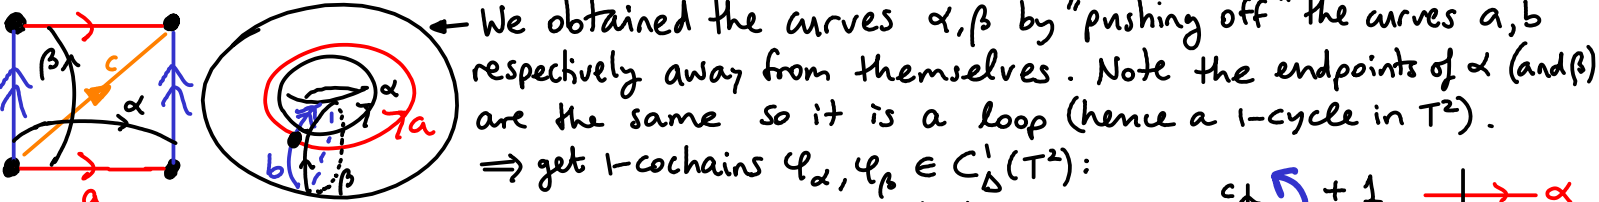 ← We obtained the curves α, β by "pushing off" the curves a, b
respectively away from themselves. Note the endpoints of α (and β)
are the same so it is a loop (hence a 1-cycle in T²).
⇒ get 1-cochains φ_α, φ_β ∈ C¹_Δ(T²):
β c α
a
α
a
b β
+1 α